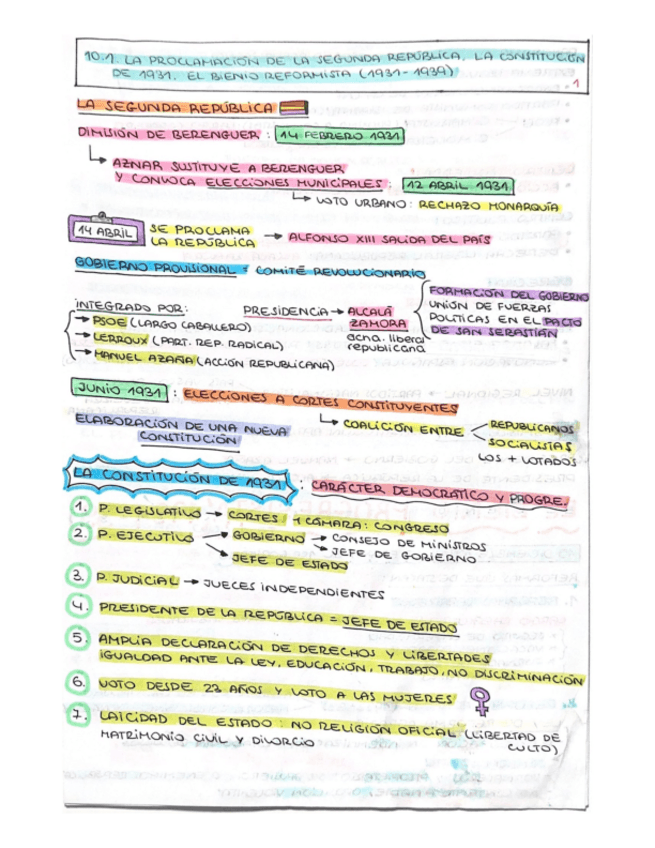 10.1. LA PROCLAMACIÓN DE LA SEGUNDA REPÚBLICA. LA CONSTITUCIÓN
DE 1931. EL BIENIO REFORMISTA (1931-1939)
1
LA SEGUNDA REPÚBLICA
DIMISIÓN DE BERENGUER : 14 FEBRERO 1931
AZNAR SUSTITUYE A BERENGUER
Y CONVOCA ELECCIONES MUNICIPALES : 12 ABRIL 1931
VOTO URBANO : RECHAZO MONARQUÍA
14 ABRIL SE PROCLAMA
LA REPÚBLICA → ALFONSO XIII SALIDA DEL PAÍS
GOBIERNO PROVISIONAL = COMITÉ REVOLUCIONARIO
FORMACIÓN DEL GOBIERNO
UNIÓN DE FUERZAS
POLÍTICAS EN EL PACTO
DE SAN SEBASTIÁN
INTEGRADO POR:
→ PSOE (LARGO CABALLERO)
→ LERROUX (PART. REP. RADICAL)
→ MANUEL AZAÑA (ACCIÓN REPUBLICANA)
PRESIDENCIA → ALCALÁ
ZAMORA
dcha. liberal
republicana
JUNIO 1931 : ELECCIONES A CORTES CONSTITUYENTES
ELABORACIÓN DE UNA NUEVA
CONSTITUCIÓN
COALICIÓN ENTRE
REPUBLICANOS
SOCIALISTAS
LOS + VOTADOS
LA CONSTITUCIÓN DE 1931 : CARÁCTER DEMOCRÁTICO Y PROGRE.
1. P. LEGISLATIVO → CORTES / 1 CÁMARA: CONGRESO
2. P. EJECUTIVO → GOBIERNO → CONSEJO DE MINISTROS
→ JEFE DE GOBIERNO
JEFE DE ESTADO
3. P. JUDICIAL → JUECES INDEPENDIENTES
4. PRESIDENTE DE LA REPÚBLICA = JEFE DE ESTADO
5. AMPLIA DECLARACIÓN DE DERECHOS Y LIBERTADES
IGUALDAD ANTE LA LEY, EDUCACIÓN, TRABAJO, NO DISCRIMINACIÓN
6. VOTO DESDE 23 AÑOS Y VOTO A LAS MUJERES
7. LAICIDAD DEL ESTADO : NO RELIGIÓN OFICIAL (LIBERTAD DE
CULTO)
MATRIMONIO CIVIL Y DIVORCIO